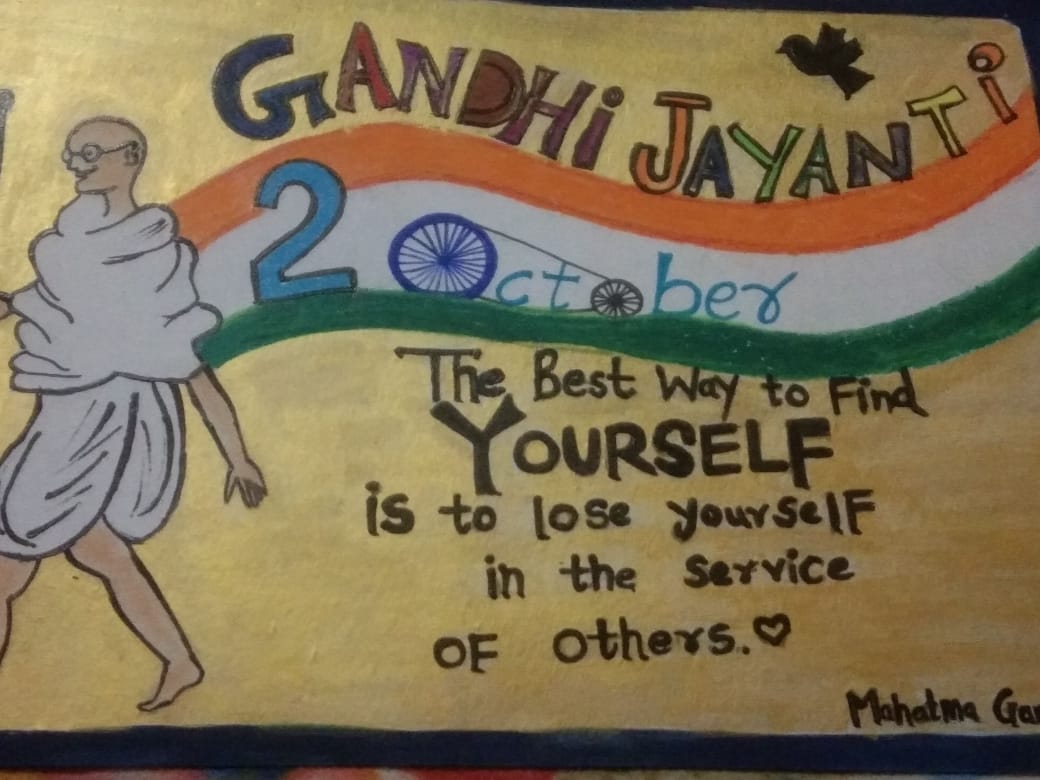 GANDHi JAYANTi
2 October
The Best Way to Find
YOURSELF
is to lose yourself
in the service
OF others.
Mahatma Gan